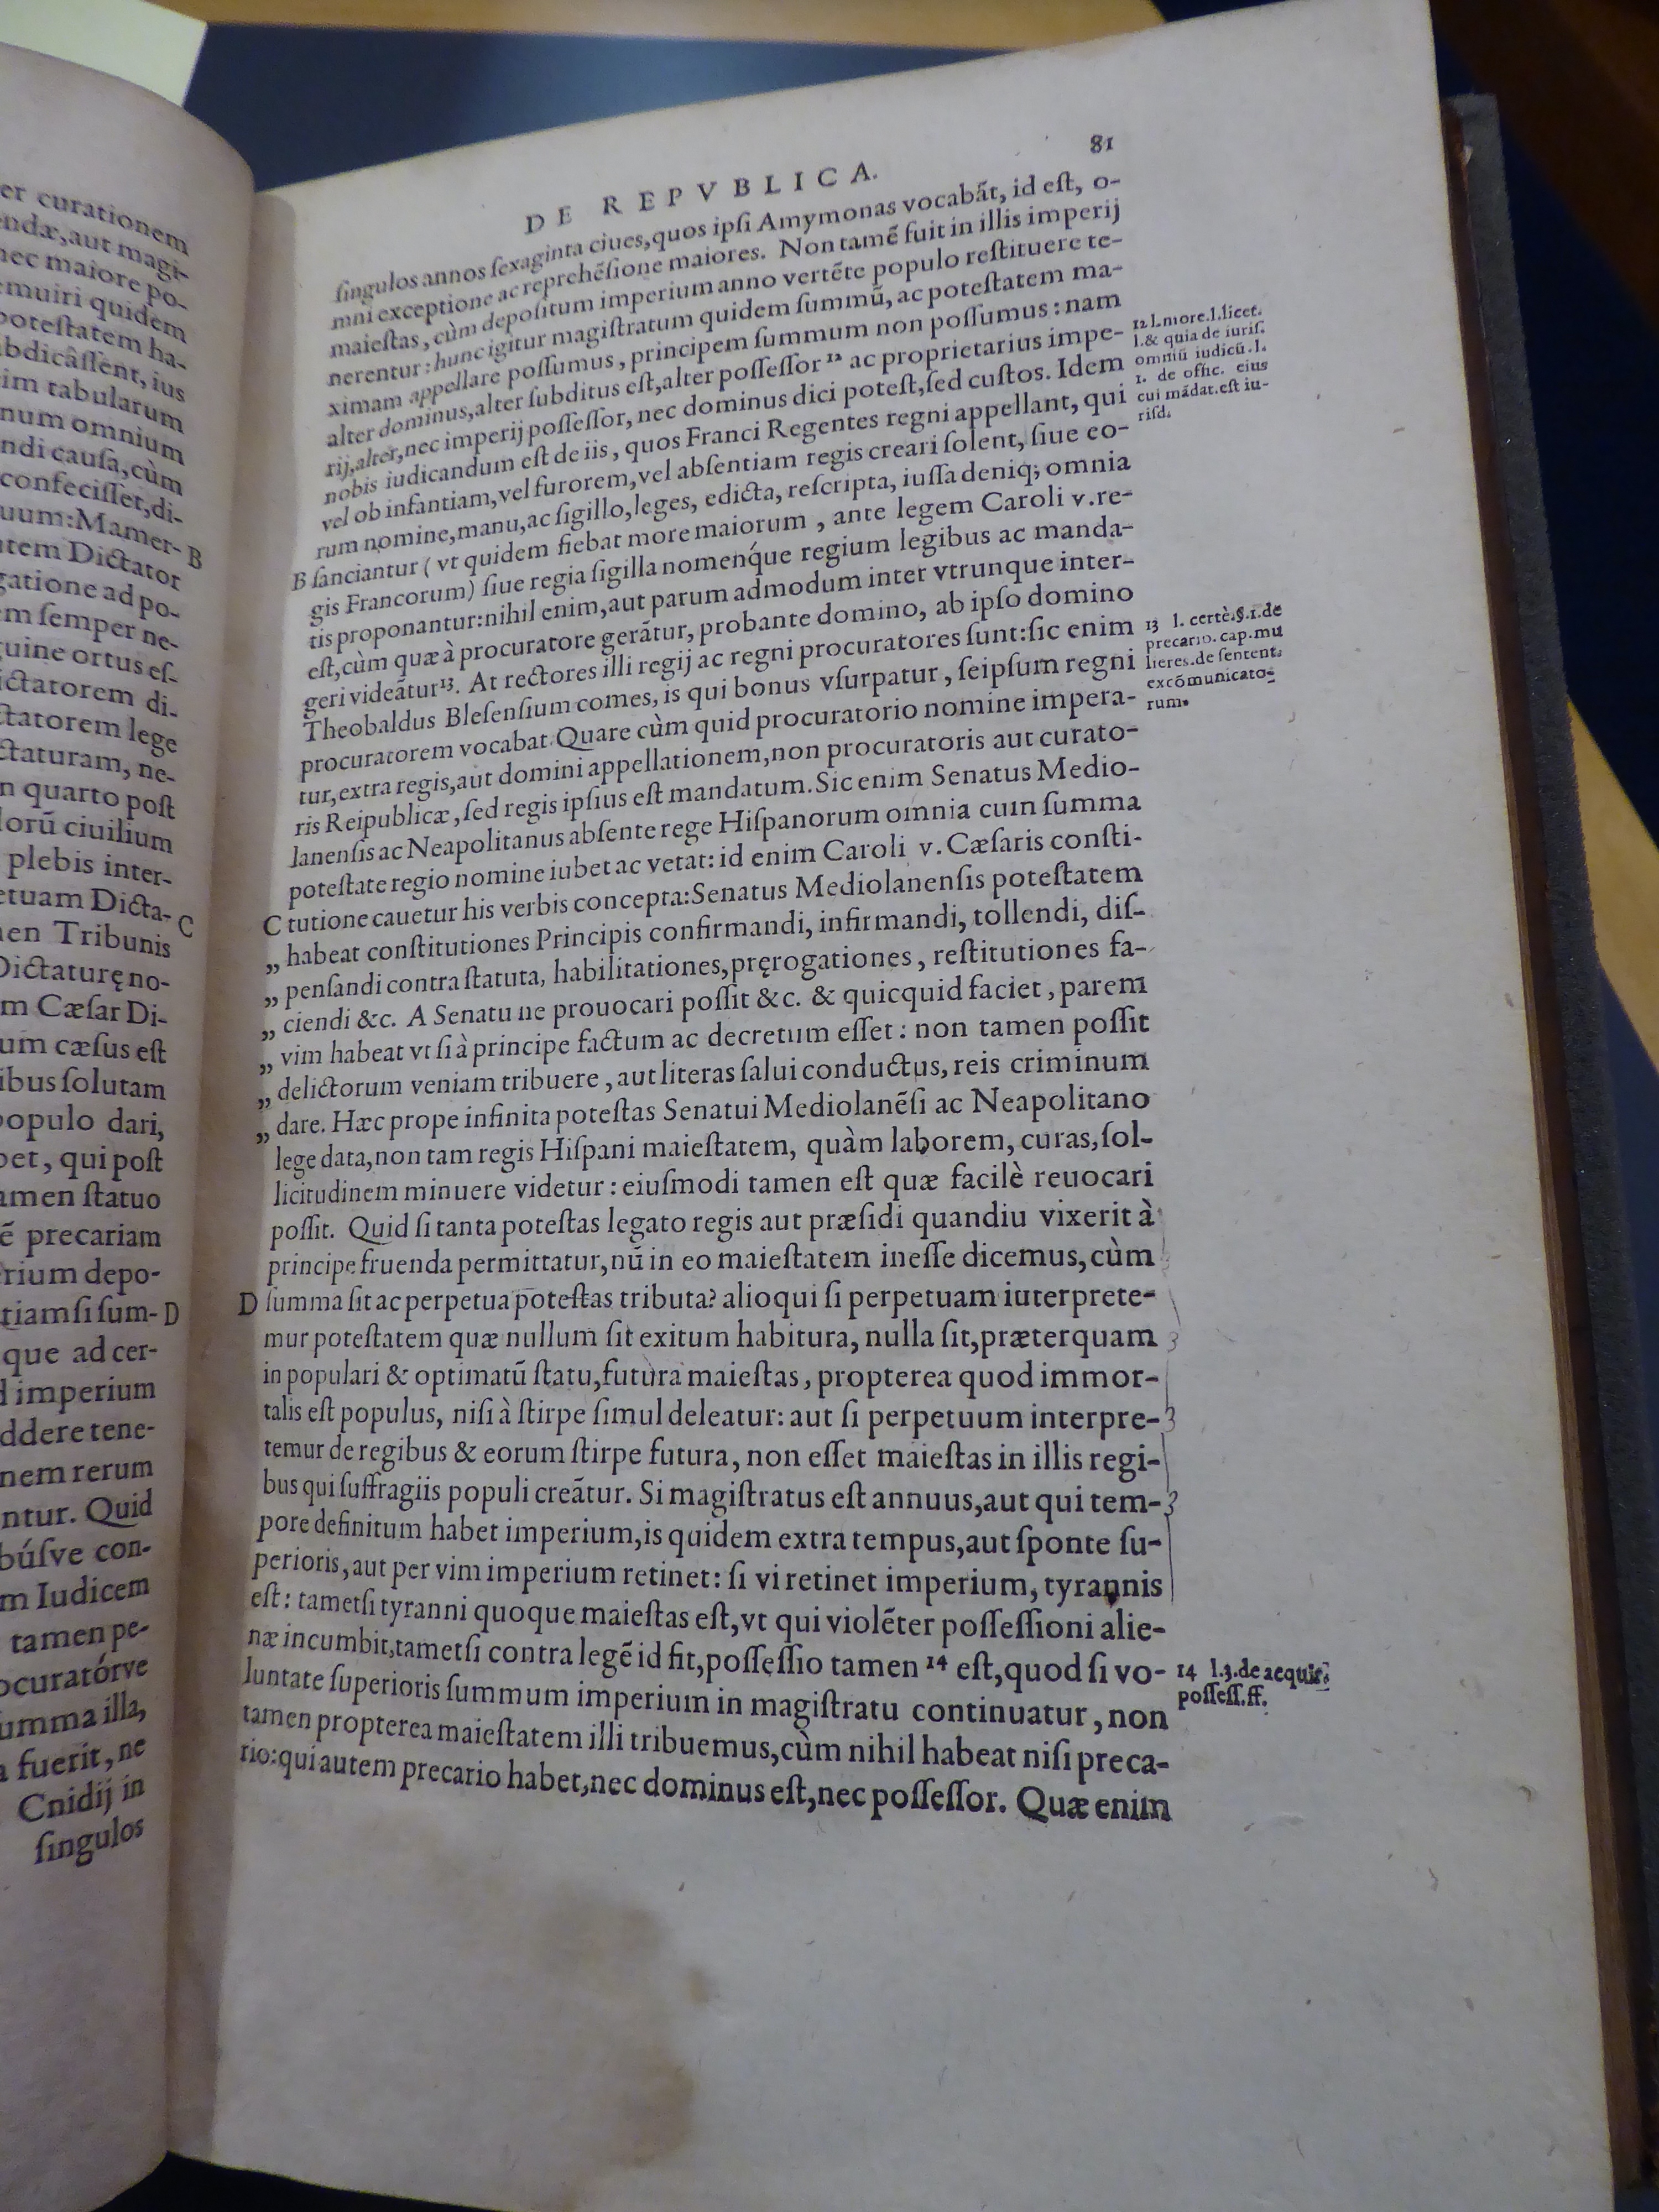 er curationem
endæ, aut magi-
nec maiore po-
emuiri quidem
potestatem ha-
bdicâssent, ius
im tabularum
num omnium
ndi causa, cùm
confecisset, di-
uum: Mamer- B
tem Dictator
gatione ad po-
em semper ne-
guine ortus es-
ictatorem di-
ctatorem lege
ctaturam, ne-
n quarto post
lorũ ciuilium
plebis inter-
etuam Dicta- C
nen Tribunis
Dictaturę no-
m Cæsar Di-
um cæsus est
ibus solutam
populo dari,
bet, qui post
amen statuo
ẽ precariam
erium depo-
tiam si sum- D
que ad cer-
d imperium
ddere tene-
nem rerum
ntur. Quid
búsve con-
m Iudicem
tamen pe-
ocuratórve
umma illa,
a fuerit, ne
Cnidij in
singulos
DE REPVBLICA. 81
singulos annos sexaginta ciues, quos ipsi Amymonas vocabãt, id est, o-
mni exceptione ac reprehẽsione maiores. Non tamẽ fuit in illis imperij
maiestas, cùm depositum imperium anno vertẽte populo restituere te-
nerentur: hunc igitur magistratum quidem summũ, ac potestatem ma-
ximam appellare possumus, principem summum non possumus: nam
alter dominus, alter subditus est, alter possessor 12 ac proprietarius impe-
rij, alter, nec imperij possessor, nec dominus dici potest, sed custos. Idem
nobis iudicandum est de iis, quos Franci Regentes regni appellant, qui
vel ob infantiam, vel furorem, vel absentiam regis creari solent, siue eo-
rum nomine, manu, ac sigillo, leges, edicta, rescripta, iussa deniq; omnia
B sanciantur (vt quidem fiebat more maiorum, ante legem Caroli v. re-
gis Francorum) siue regia sigilla nomenq́ue regium legibus ac manda-
tis proponantur: nihil enim, aut parum admodum inter vtrunque inter-
est, cùm quæ à procuratore gerãtur, probante domino, ab ipso domino
geri videãtur 13. At rectores illi regij ac regni procuratores sunt: sic enim
Theobaldus Blesensium comes, is qui bonus vsurpatur, seipsum regni
procuratorem vocabat. Quare cùm quid procuratorio nomine impera-
tur, extra regis, aut domini appellationem, non procuratoris aut curato-
ris Reipublicæ, sed regis ipsius est mandatum. Sic enim Senatus Medio-
lanensis ac Neapolitanus absente rege Hispanorum omnia cum summa
potestate regio nomine iubet ac vetat: id enim Caroli v. Cæsaris consti-
C tutione cauetur his verbis concepta: Senatus Mediolanensis potestatem
„ habeat constitutiones Principis confirmandi, infirmandi, tollendi, dis-
„ pensandi contra statuta, habilitationes, pręrogationes, restitutiones fa-
„ ciendi &c. A Senatu ne prouocari possit &c. & quicquid faciet, parem
„ vim habeat vt si à principe factum ac decretum esset: non tamen possit
„ delictorum veniam tribuere, aut literas salui conductus, reis criminum
„ dare. Hæc prope infinita potestas Senatui Mediolanẽsi ac Neapolitano
lege data, non tam regis Hispani maiestatem, quàm laborem, curas, sol-
licitudinem minuere videtur: eiusmodi tamen est quæ facilè reuocari
possit. Quid si tanta potestas legato regis aut præsidi quandiu vixerit à
principe fruenda permittatur, nũ in eo maiestatem inesse dicemus, cùm
D summa sit ac perpetua potestas tributa? alioqui si perpetuam iuterprete-
mur potestatem quæ nullum sit exitum habitura, nulla sit, præterquam
in populari & optimatũ statu, futura maiestas, propterea quod immor-
talis est populus, nisi à stirpe simul deleatur: aut si perpetuum interpre-
temur de regibus & eorum stirpe futura, non esset maiestas in illis regi-
bus qui suffragiis populi creãtur. Si magistratus est annuus, aut qui tem-
pore definitum habet imperium, is quidem extra tempus, aut sponte su-
perioris, aut per vim imperium retinet: si vi retinet imperium, tyrannis
est: tametsi tyranni quoque maiestas est, vt qui violẽter possessioni alie-
næ incumbit, tametsi contra legẽ id fit, possessio tamen 14 est, quod si vo-
luntate superioris summum imperium in magistratu continuatur, non
tamen propterea maiestatem illi tribuemus, cùm nihil habeat nisi preca-
rio: qui autem precario habet, nec dominus est, nec possessor. Quæ enim
12 l. more. l. licet.
l. & quia de iuris.
omniũ iudicũ. l.
1. de offic. eius
cui mãdat. est iu-
risd.
13 l. certè. §. 1. de
precario. cap. mu
lieres. de sentent.
excõmunicato-
rum.
14 l. 3. de acquir.
possess. ff.